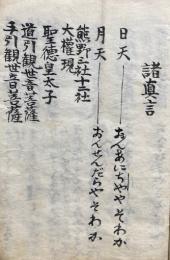 諸真言
日天――おんあにちやそわか
月天――おんせんだらやそわか
熊野三社十二社
大權現
聖徳皇太子
道引観世音菩薩
手引観世音菩薩